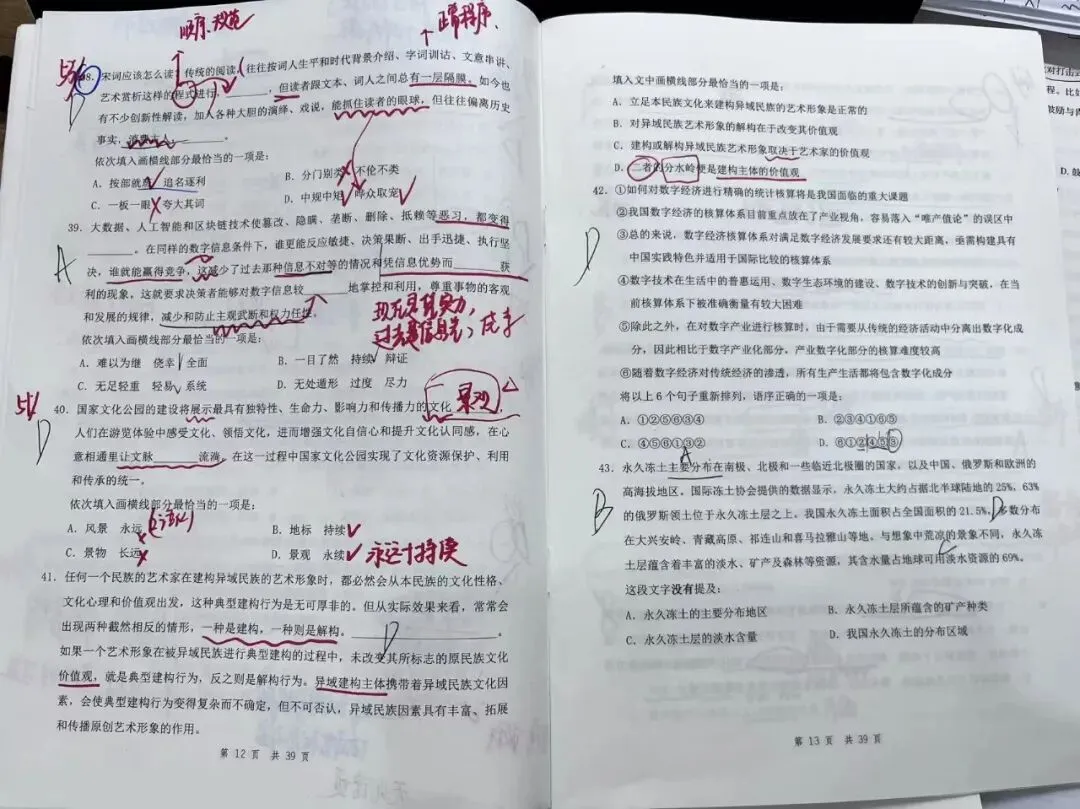 顺序、规范
正常程序
38. 宋词应该怎么读?传统的阅读,往往按词人生平和时代背景介绍、字词训诂、文意串讲、
艺术赏析这样的程式进行,________,但读者跟文本、词人之间总有一层隔膜。如今也
有不少创新性解读,加入各种大胆的演绎、戏说,能抓住读者的眼球,但往往偏离历史
事实,消费古人,________。
依次填入画横线部分最恰当的一项是:
A. 按部就班 追名逐利 B. 分门别类 不伦不类
C. 一板一眼 夸大其词 D. 中规中矩 哗众取宠
D
39. 大数据、人工智能和区块链技术使篡改、隐瞒、垄断、删除、抵赖等恶习,都变得
________。在同样的数字信息条件下,谁更能反应敏捷、决策果断、出手迅捷、执行坚
决,谁就能赢得竞争,这减少了过去那种信息不对等的情况和凭信息优势而________获
利的现象,这就要求决策者能够对数字信息较________地掌控和利用,尊重事物的客观
和发展的规律,减少和防止主观武断和权力任性。
依次填入画横线部分最恰当的一项是:
A. 难以为继 侥幸 全面 B. 一目了然 持续 辩证
C. 无足轻重 轻易 系统 D. 无处遁形 过度 尽力
A
40. 国家文化公园的建设将展示最具有独特性、生命力、影响力和传播力的文化________,
景观
人们在游览体验中感受文化、领悟文化,进而增强文化自信心和提升文化认同感,在心
意相通里让文脉________流淌。在这一过程中国家文化公园实现了文化资源保护、利用
和传承的统一。
依次填入画横线部分最恰当的一项是:
A. 风景 永远 B. 地标 持续
C. 景物 长远 D. 景观 永续
永远+持续
D
41. 任何一个民族的艺术家在建构异域民族的艺术形象时,都必然会从本民族的文化性格、
文化心理和价值观出发,这种典型建构行为是无可厚非的。但从实际效果来看,常常会
出现两种截然相反的情形,一种是建构,一种则是解构。________________。
D
如果一个艺术形象在被异域民族进行典型建构的过程中,未改变其所标志的原民族文化
价值观,就是典型建构行为,反之则是解构行为。异域建构主体携带着异域民族文化因
素,会使典型建构行为变得复杂而不确定,但不可否认,异域民族因素具有丰富、拓展
和传播原创艺术形象的作用。
第 12 页 共 39 页
填入文中画横线部分最恰当的一项是:
A. 立足本民族文化来建构异域民族的艺术形象是正常的
B. 对异域民族艺术形象的解构在于改变其价值观
C. 建构或解构异域民族艺术形象取决于艺术家的价值观
D. 二者的分水岭便是建构主体的价值观
42. ①如何对数字经济进行精确的统计核算将是我国面临的重大课题
②我国数字经济的核算体系目前重点放在了产业视角,容易落入“唯产值论”的误区中
③总的来说,数字经济核算体系对满足数字经济发展要求还有较大距离,亟需构建具有
中国实践特色并适用于国际比较的核算体系
④数字技术在生活中的普惠运用、数字生态环境的建设、数字技术的创新与突破,在当
前核算体系下被准确衡量有较大困难
⑤除此之外,在对数字产业进行核算时,由于需要从传统的经济活动中分离出数字化成
分,因此相比于数字产业化部分,产业数字化部分的核算难度较高
⑥随着数字经济对传统经济的渗透,所有生产生活都将包含数字化成分
将以上 6 个句子重新排列,语序正确的一项是:
A. ①②⑤⑥③④ B. ②③④①⑥⑤
C. ④⑤⑥①③② D. ⑥①②④⑤③
D
43. 永久冻土主要分布在南极、北极和一些临近北极圈的国家,以及中国、俄罗斯和欧洲的
高海拔地区。国际冻土协会提供的数据显示,永久冻土大约占据北半球陆地的 25%,63%
的俄罗斯领土位于永久冻土层之上,我国永久冻土面积占全国面积的 21.5%,多数分布
在大兴安岭、青藏高原、祁连山和喜马拉雅山等地。与想象中荒凉的景象不同,永久冻
土层蕴含着丰富的淡水、矿产及森林等资源,其含水量占地球可用淡水资源的 69%。
这段文字没有提及:
A. 永久冻土的主要分布地区 B. 永久冻土层所蕴含的矿产种类
C. 永久冻土层的淡水含量 D. 我国永久冻土的分布区域
B
第 13 页 共 39 页